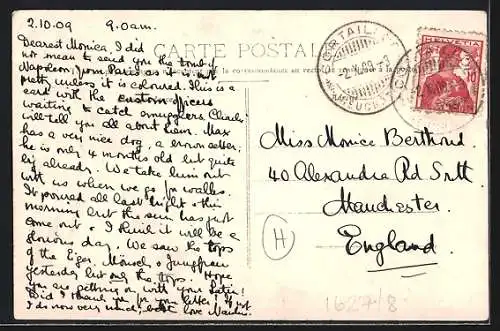 2.10.09 9.0am.
Dearest Monica, I did
not mean to send you the tomb of
Napoleon, from Paris as it is not
pretty unless it is coloured. This is a
card with the custom officers
waiting to catch smugglers. Charlie
will tell you all about them. Max
has a very nice dog, a brown setter;
he is only 4 months old but quite
big already. We take him out
with us when we go for walks.
It poured all last night & this
morning but the sun has just
come out & I think it will be a
glorious day. We saw the tops
of the Eiger, Mönch & Jungfrau
yesterday but only the tops. Hope
you are getting on with your Latin!
Did I thank you for your letter? If not
I do now very much; best love
CARTE POSTALE
HELVETIA
10
Miss Monica Berthoud
40 Alexandra Rd Sth
Manchester.
England.
H
1627/8